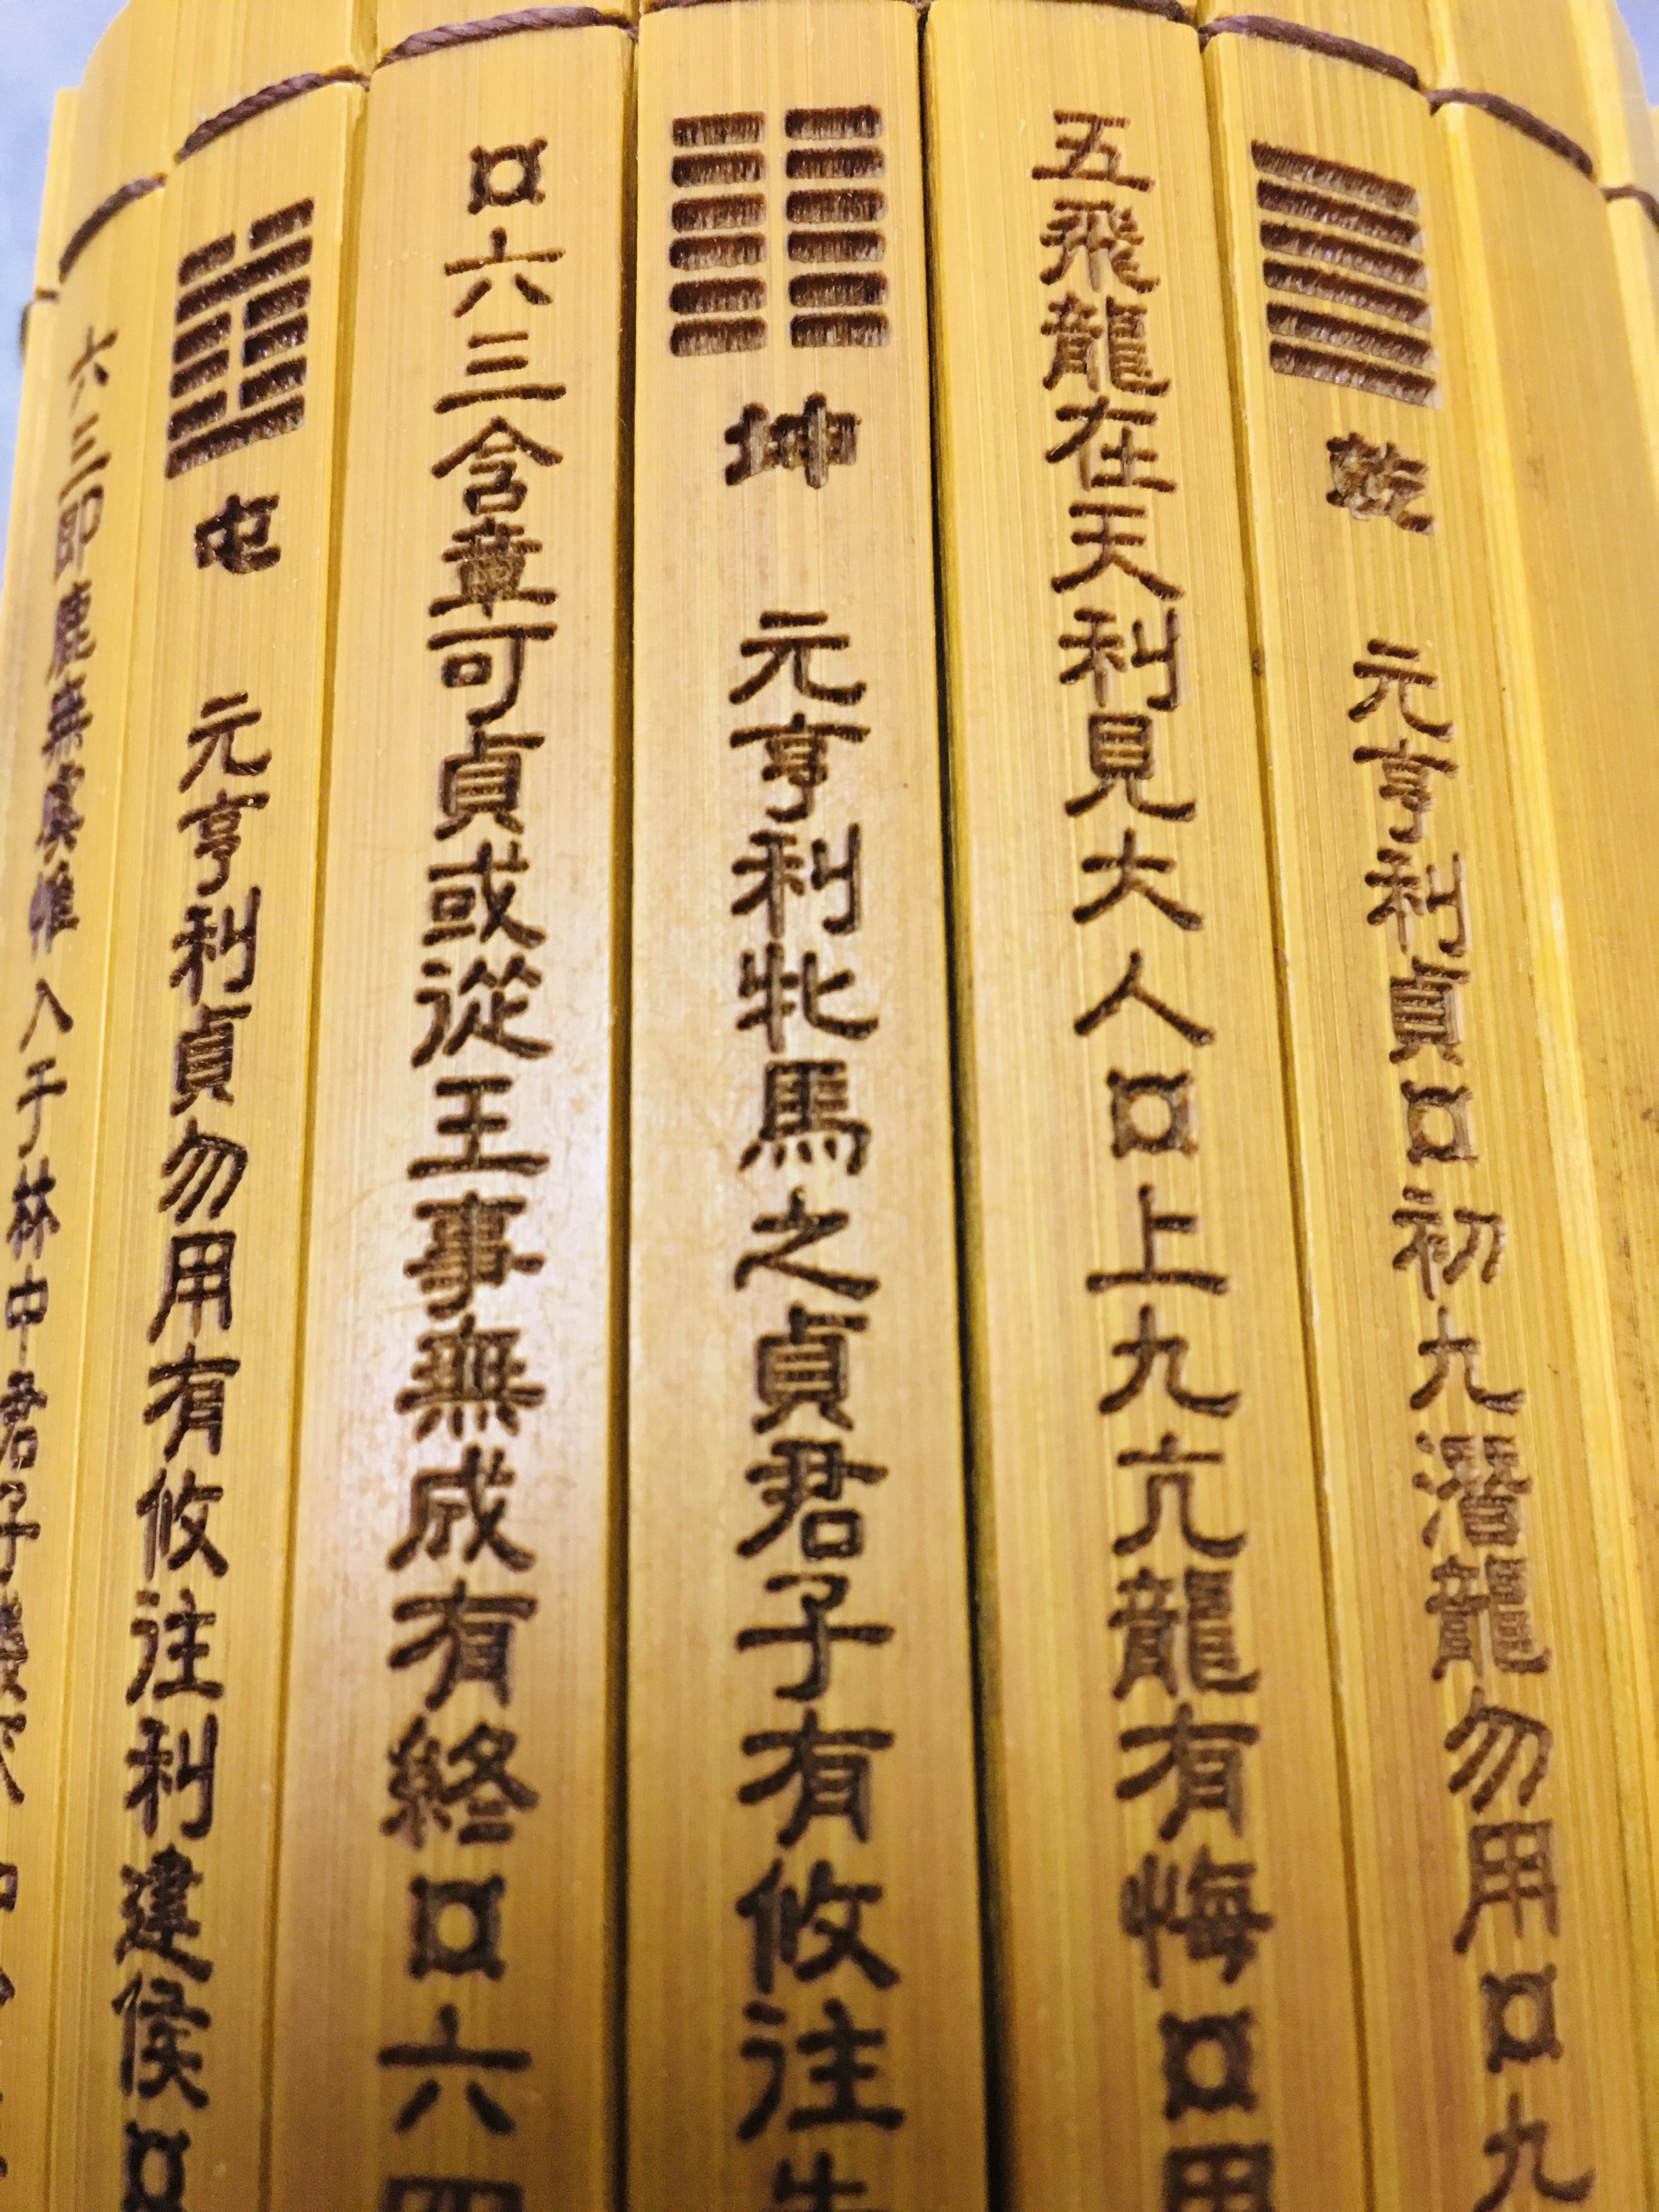 乾 元亨利貞口初九潛龍勿用口九
五飛龍在天利見大人口上九亢龍有悔口用
坤 元亨利牝馬之貞君子有攸往先
口六三含章可貞或從王事無成有終口六四
屯 元亨利貞勿用有攸往利建侯口
六三即鹿無虞惟入于林中君子